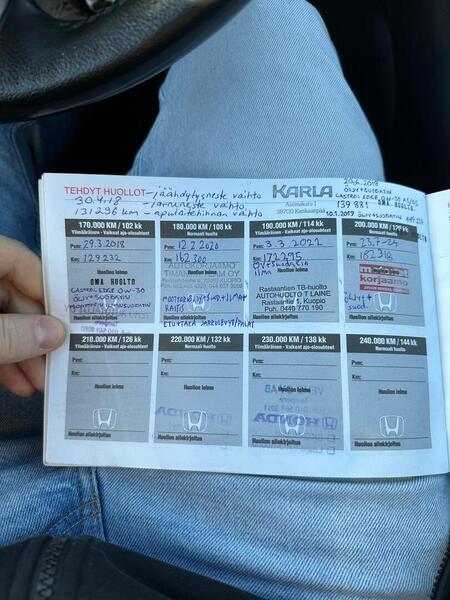 TEHDYT HUOLLOT - jäähdytysneste vaihto
30.4.18 - jarruneste vaihto
131296 km - apulaitehihnan vaihto
KARLA
Asemakatu 1
38700 Kankaanpää
20.6.2018
ÖLJY+SUODATIN
CASTROL EDGE 0W-30
139 881
10.1.2019 ÖLJY+SUODATIN
170.000 KM / 102 kk
Ylimääräinen - Vaikeat ajo-olosuhteet
Pvm: 29.3.2018
Km: 129232
Huollon leima
OMA HUOLTO
CASTROL EDGE 0W-30
ÖLJY+SUODATIN
180.000 KM / 108 kk
Normaali huolto
Pvm: 12.2.2020
Km: 162300
AUTOKORJAAMO
MOOTTORIÖLJY+SUOD, ILMA+
RAITIS
ETU+TAKA JARRULEVYT/PALAT
190.000 KM / 114 kk
Ylimääräinen - Vaikeat ajo-olosuhteet
Pvm: 3.3.2021
Km: 172295
ÖLJY+SUODATIN
ILMA
Rastaantien TB-huolto
AUTOHUOLTO T LAINE
Rastaantie 1, Kuopio
Puh. 0449 770 190
200.000 KM / 120 kk
Normaali huolto
Pvm: 23.7-24
Km: 182312
korjaamo
ÖLJYT+
suod.
210.000 KM / 126 kk
Ylimääräinen - Vaikeat ajo-olosuhteet
Pvm:
Km:
Huollon leima
Huollon allekirjoitus
220.000 KM / 132 kk
Normaali huolto
Pvm:
Km:
Huollon leima
Huollon allekirjoitus
230.000 KM / 138 kk
Ylimääräinen - Vaikeat ajo-olosuhteet
Pvm:
Km:
Huollon leima
HONDA
Huollon allekirjoitus
240.000 KM / 144 kk
Normaali huolto
Pvm:
Km:
Huollon leima
Huollon allekirjoitus